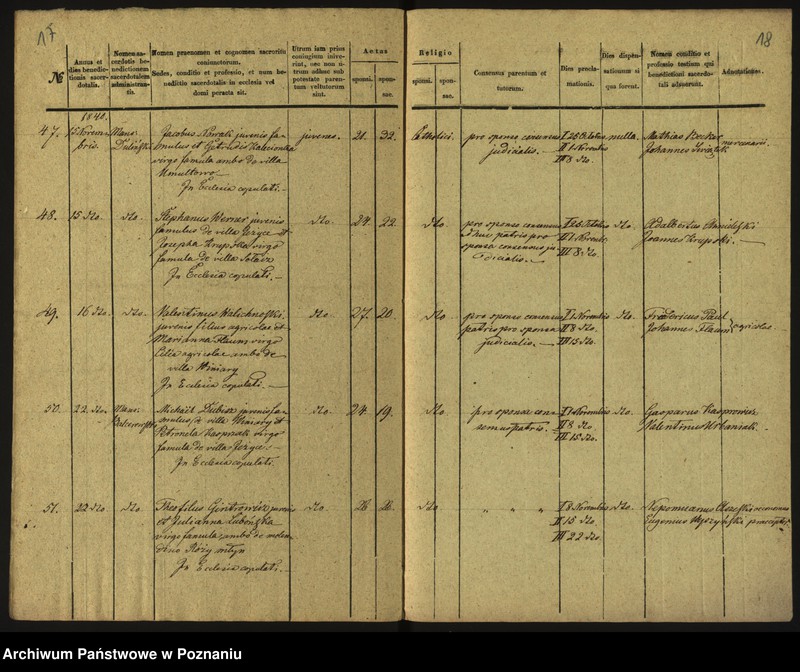 17
18
№
Annus et dies benedictionis sacerdotalis.
Nomen sacerdotis benedictionem sacerdotalem administrantis.
Nomen praenomen et cognomen sacro ritu coniunctorum.
Sedes, conditio et professio, et num benedictio sacerdotalis in ecclesia vel domi peracta sit.
Utrum iam prius coniugium inive-
rint, nec non utrum adhuc sub
potestate parentum vel tutorum
sint.
Aetas
sponsi.
sponsae.
Religio
sponsi.
sponsae.
Consensus parentum et
tutorum.
Dies procla-
mationis.
Dies dispen-
sationum si
qua forent.
Nomen conditio et
professio testium qui
benedictioni sacerdo-
tali adfuerunt.
Adnotationes.
1840.
47.
15 Novem
bris.
Mans.
Jacobus Nowak juvenis fa-
mulus et
virgo famula ambo de villa
In Ecclesia copulati.
juvenis.
21.
32.
Catholici.
pro sponso consensus
judicialis.
I 25 Octobris
II 1 Novembris
III 8 dto.
nulla.
Mathias Becker
Johannes
mercenarii.
48.
15 dto.
dto.
Stephanus Werner juvenis
famulus de villa Jezyce et
Josepha Krupska virgo
famula de villa Solacz
In Ecclesia copulati.
dto.
24.
22.
dto.
pro sponso consensus
adhuc patris pro
sponsa consensus ju-
dicialis.
I 25 Octobris
II 1 Novemb.
III 8 dto.
dto.
Adalbertus
Joannes Krupski.
49.
16 dto.
dto.
Valentinus
juvenis filius agricolae et
Marianna Flaum virgo
filia agricolae ambo de
villa Winiary
In Ecclesia copulati.
dto.
27.
20.
dto.
pro sponso consensus
patris pro sponsa
judicialis.
I 1 Novembris
II 8 dto.
III 15 dto.
dto.
Fridericus Paul
Johannes Flaum
agricolae
50.
22. dto.
Mans.
Michael Dubisz juvenis fa-
mulus, e villa Winiary et
Petronela Kasprzak virgo
famula de villa Jezyce.
In Ecclesia copulati.
dto.
24.
19.
dto.
pro sponsae con-
sensus patris.
I 1 Novembris
II 8 dto.
III 15 dto.
dto.
Gasparus Kasprowicz
Valentinus Urbaniak.
51.
22 dto.
dto.
Theofilus juvenis
et Julianna
virgo famula, ambo de molen-
dino Rózy młyn
In Ecclesia copulati.
dto.
26
26.
dto
" " "
I 8 Novembris
II 15 dto.
III 22 dto.
dto.
Nepomucenus
Eugenius
Archiwum Państwowe w Poznaniu